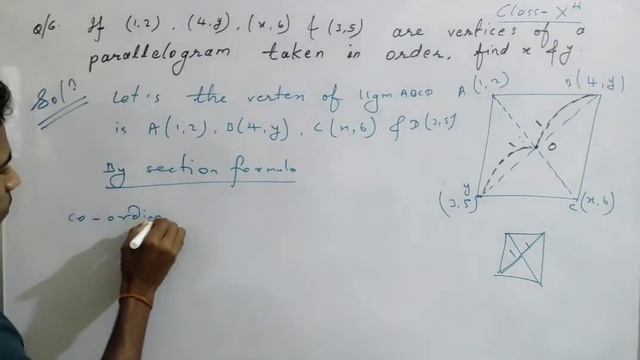 Class-Xth
Q/6. If (1,2), (4,y), (x,6) & (3,5) are vertices of a
parallelogram taken in order, find x & y.
Soln Let's the vertex of llgm ABCD
is A(1,2), B(4,y), C(x,6) & D(3,5)
By section formula
co-ordina
A(1,2)
B(4,y)
O
y
(3,5)
C(x,6)